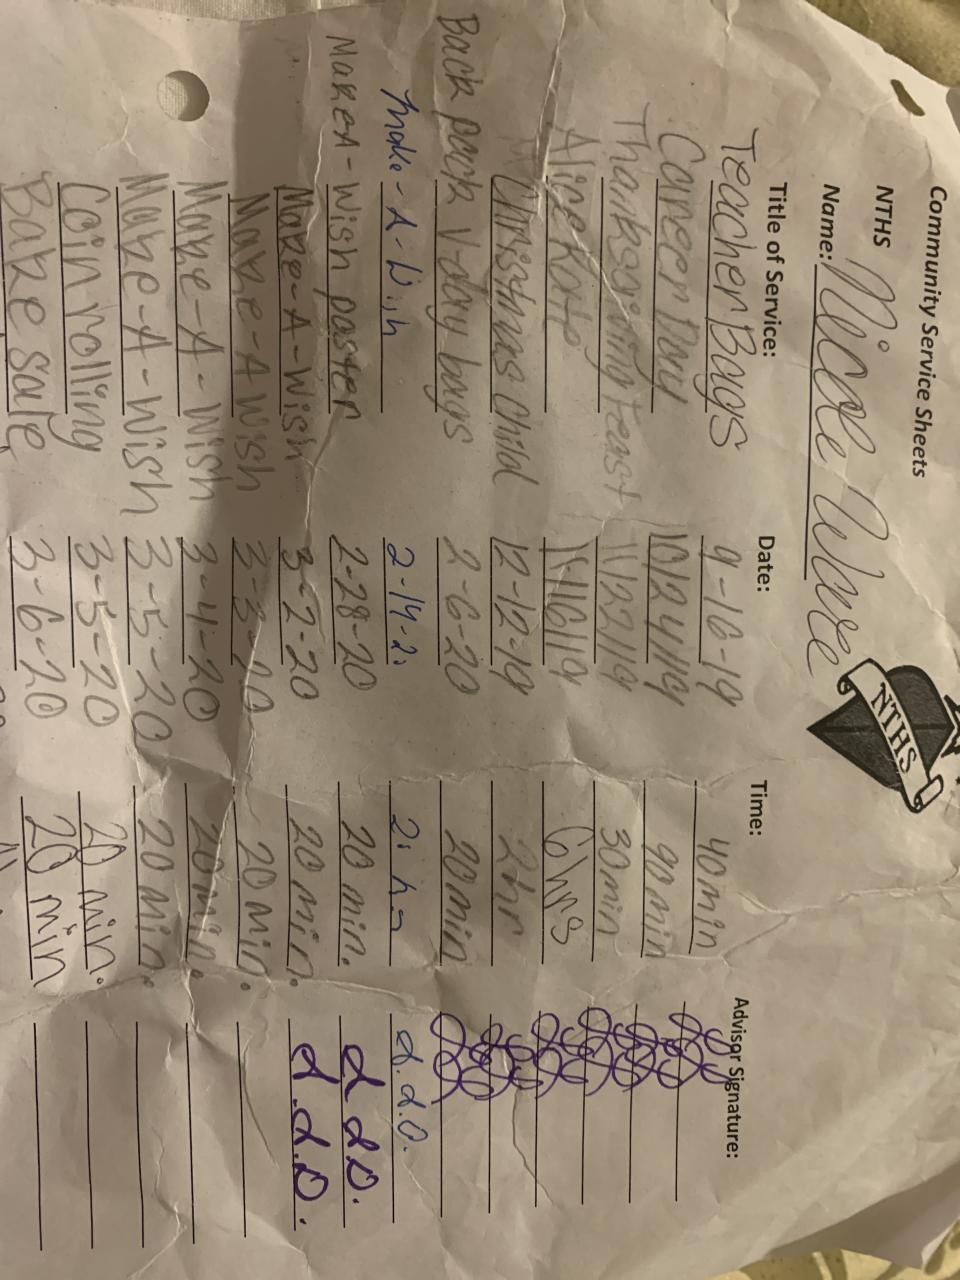 Community Service Sheets
NTHS
NTHS
Name: Nicole Ware
Title of Service: Date: Time: Advisor Signature:
Teacher Bags 9-16-19 40min
Career Day 10/24/19 90min
Thanksgiving feast 11/22/19 30min
11/16/19 6hrs
Christmas Child 12-12-19 2hr
Back pack V-day bags 2-6-20 20min
Make-A-Wish 2-19-2. 2. hr
Make A-Wish poster 2-28-20 20 min.
Make-A-Wish 3-2-20 20 min.
Make-A Wish 3-3-20 20 min.
Make-A-Wish 3-4-20 20 min.
Make-A-Wish 3-5-20 20 min.
Coin rolling 3-5-20 20 min.
Bake sale 3-6-20 20 min